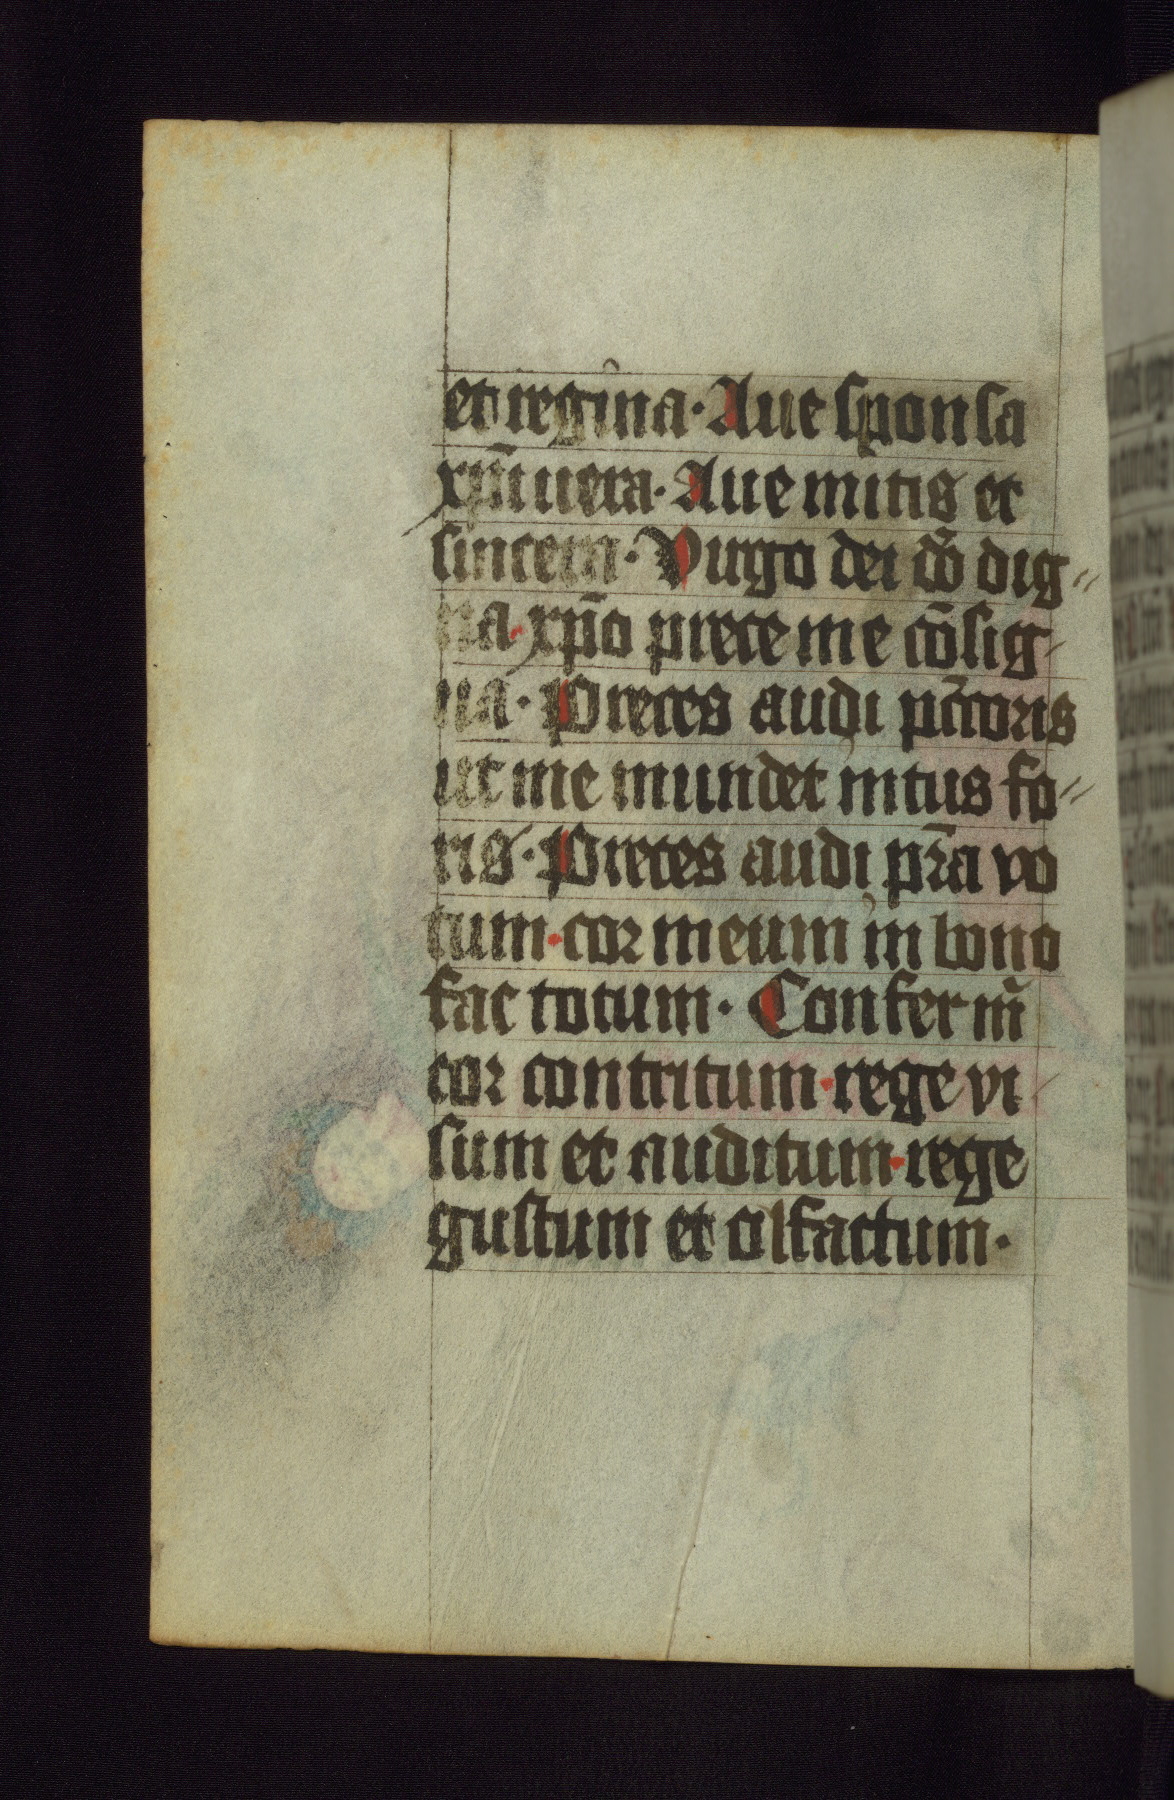 et regina. Aue sponsa
xp̄i uera. Aue mitis et
sincera. Virgo dei dō dig-
na. xp̄o prece me cōsig-
na. Preces audi pc̄coris
ut me mundet intus fo-
ris. Preces audi pr̄a vo
tum. cor meum in bono
fac totum. Confer m̄
cor contritum. rege vi
sum et auditum. rege
gustum et olfactum.